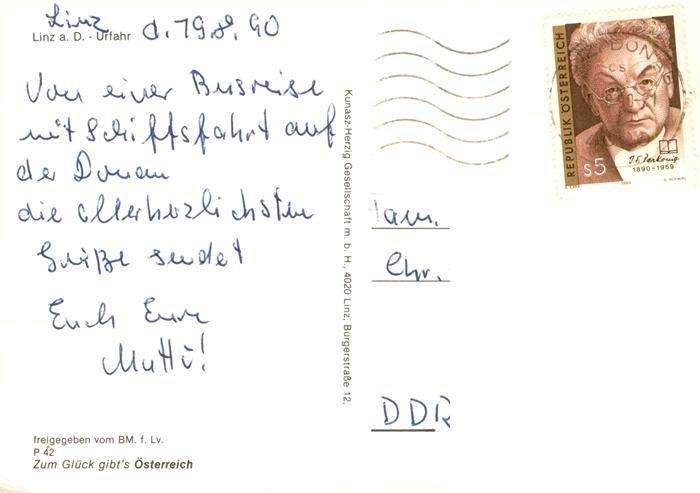 Linz
Linz a. D. - Urfahr d. 19.8.90
Von einer Busreise
mit Schiffsfahrt auf
der Donau
die allerherzlichsten
Grüße sendet
Euch Eure
Mutti!
freigegeben vom BM. f. Lv.
P 42
Zum Glück gibt's Österreich
Kunasz-Herzig Gesellschaft m. b. H., 4020 Linz, Bürgerstraße 12.
REPUBLIK ÖSTERREICH
S5
J.F. Perkonig
1890-1959
1990
Fam.
Chr.
DDR